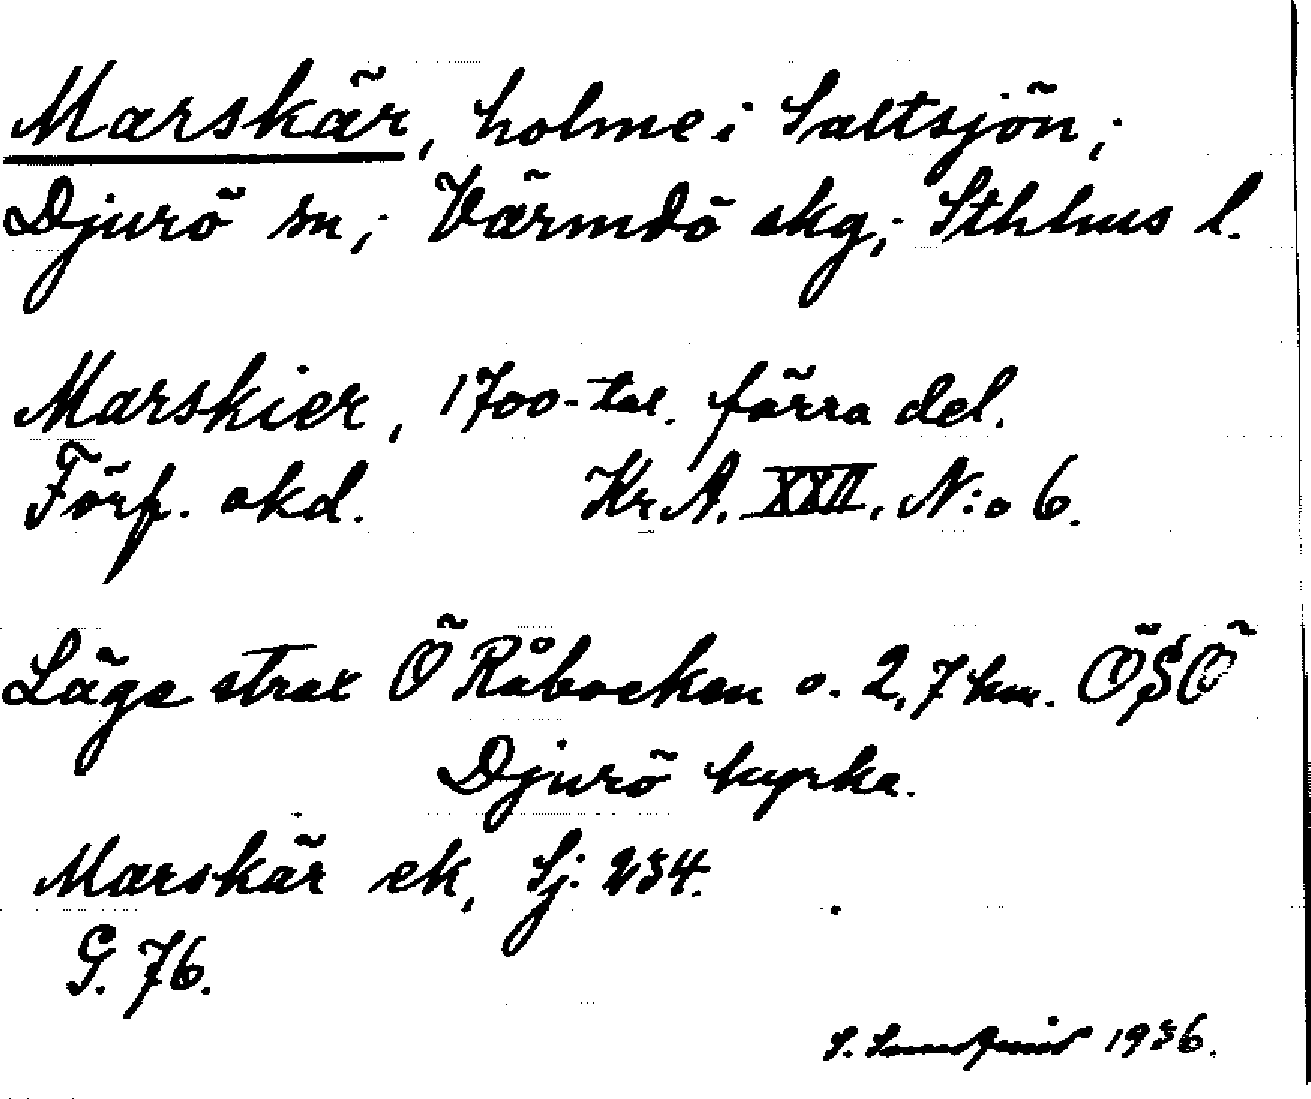 Marskär, holme i Saltsjön;
Djurö sn; Värmdö skg; Sthlms l.
Marskier, 1700-tal. förra del.
Förf. okd. Kr. A. XXII, N:o 6.
Läge strax Ö Råbocken o. 2,7 km. ÖSÖ
Djurö kyrka.
Marskär ek, Sj. 234.
G. 76.
S. 1936.